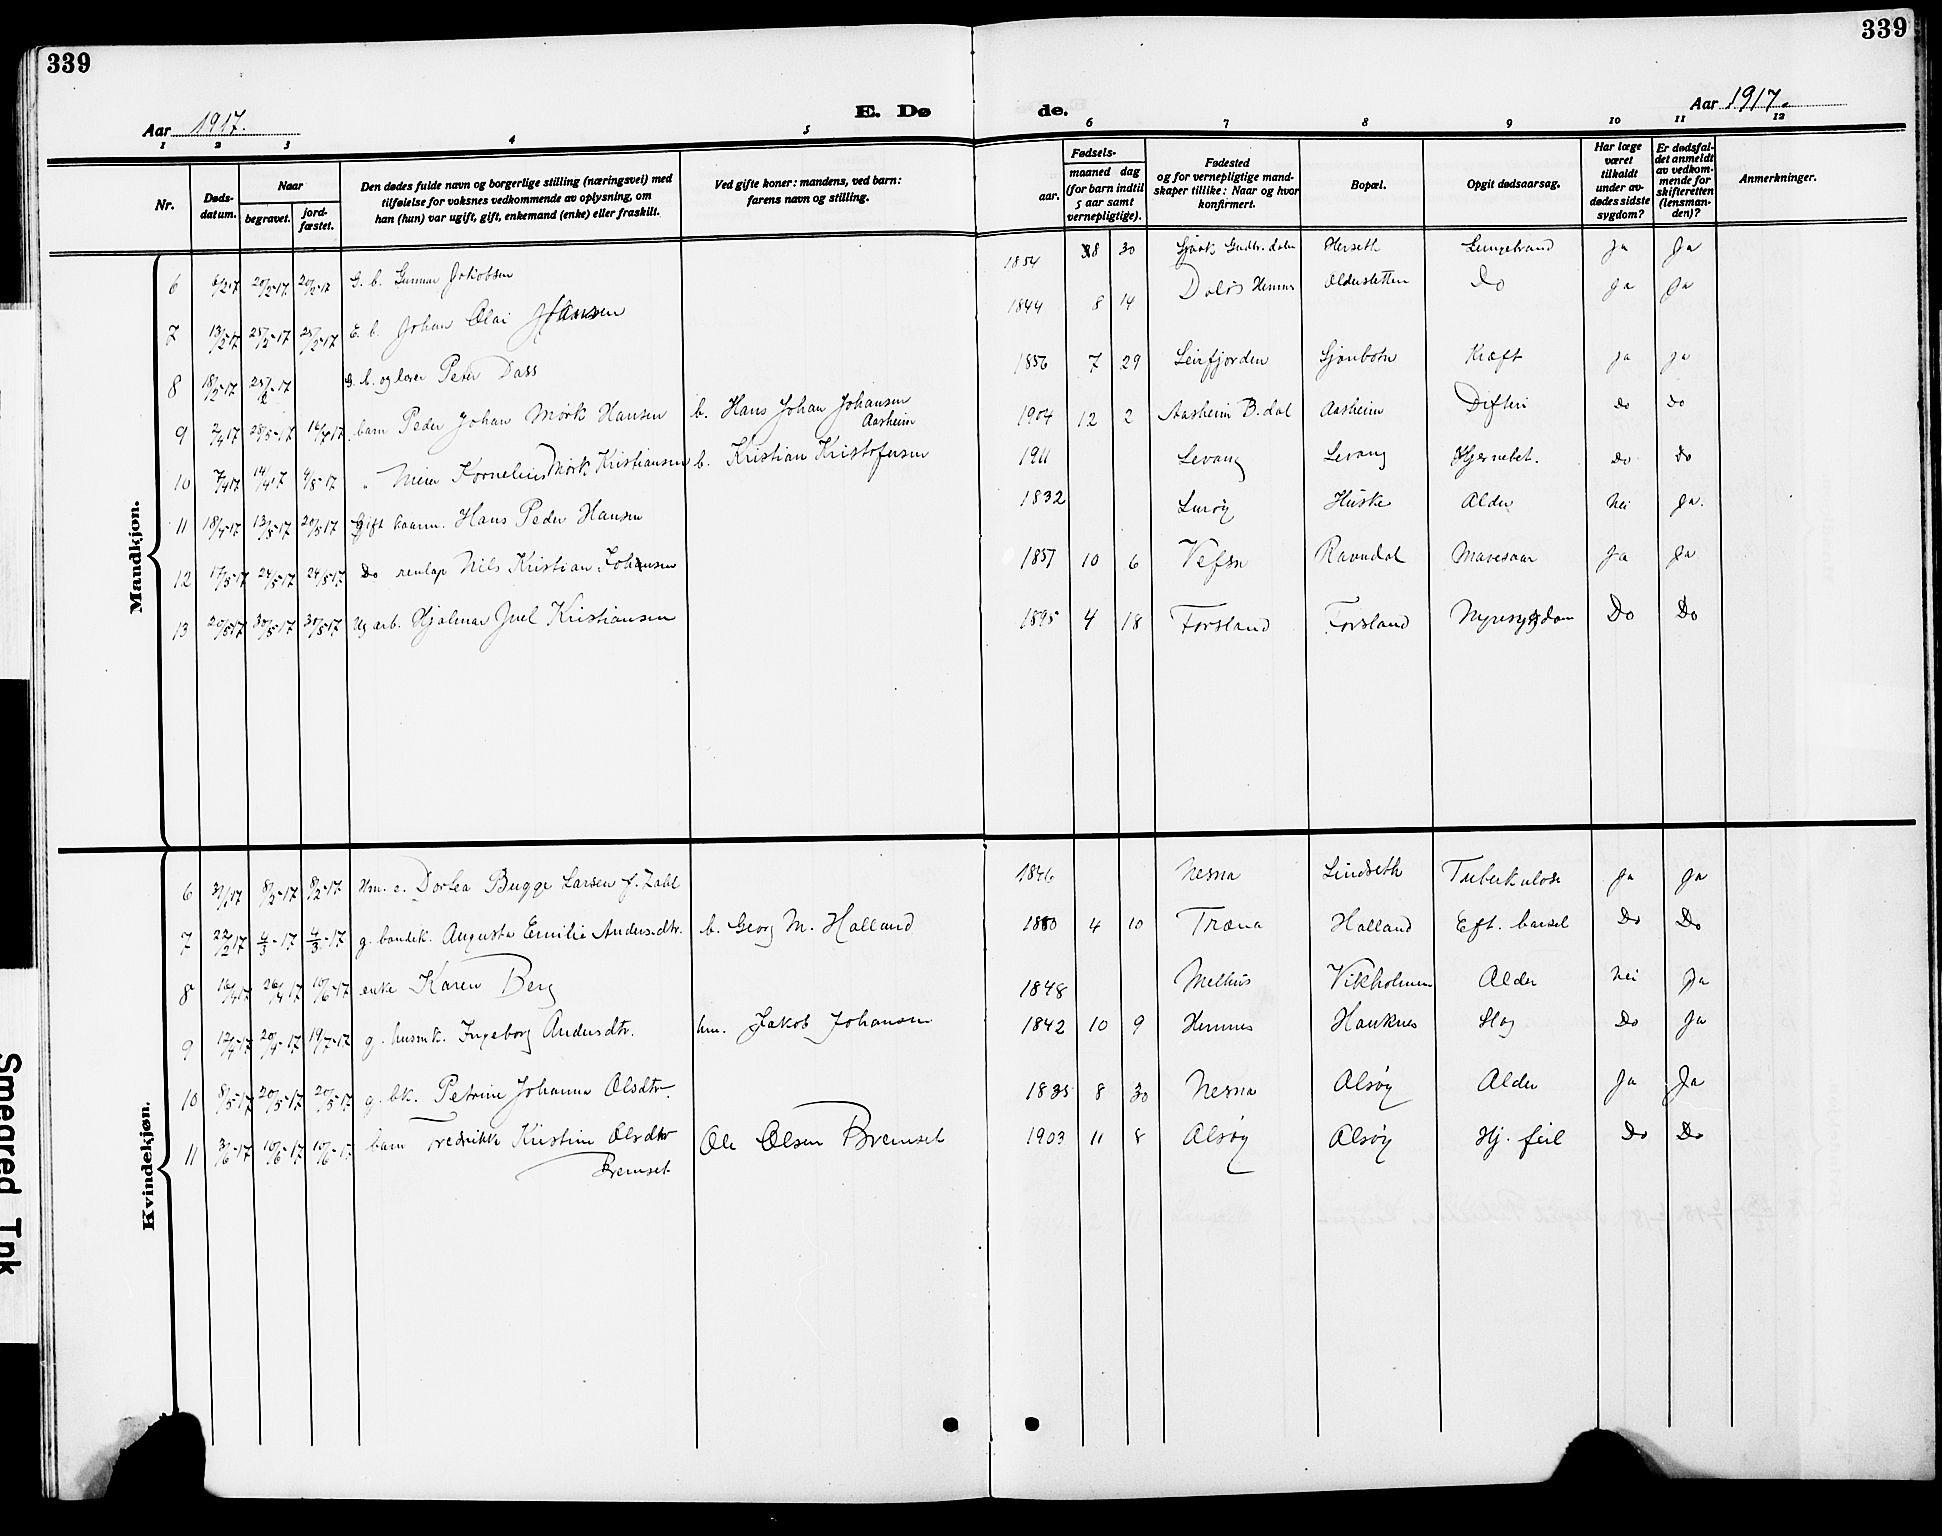 339
339
Aar 1917.
E. Dø de.
Aar 1917.
1 2 3 4 5 6 7 8 9 10 11 12
Nr.
Døds-
datum.
Naar
begravet.
jord-
fæstet.
Den dødes fulde navn og borgerlige stilling (næringsvei) med
tilføielse for voksnes vedkommende av oplysning, om
han (hun) var ugift, gift, enkemand (enke) eller fraskilt.
Ved gifte koner: mandens, ved barn:
farens navn og stilling.
Fødsels-
aar.
maaned dag
(for barn indtil
5 aar samt
vernepligtige).
Fødested
og for vernepligtige mand-
skaper tillike: Naar og hvor
konfirmert.
Bopæl.
Opgit dødsaarsag.
Har læge
været
tilkaldt
under av-
dødes sidste
sygdom?
Er dødsfal-
det anmeldt
av vedkom-
mende for
skifteretten
(lensman-
den)?
Anmerkninger.
Mandkjøn.
6 6/2 17 20/2-17 20/2-17 G. b. Gunnar Jakobsen 1854 8 30 Herseth Ja Ja
7 13/2-17 25/2-17 25/2-17 E. b. Johan Olai Hansen 1844 8 14 Hemnes Do Ja Ja
8 18/2-17 G. b. og lærer Peter Dass 1856 7 29 Leirfjorden Sjonbotn Kræft Ja Ja
9 2/4 17 barn Peder Johan Mørk Hansen b. Hans Johan Johansen 1904 12 2 Aasheim B. dal Aasheim Difteri Do Do
Aasheim
10 7/4 17 14/4 17 " Kornelius Mørk Kristiansen b. Kristian Kristofersen 1911 Levang Levang Hjernebet. Do Do
11 18/4-17 13/5-17 20/5 17 Gift kaarm. Hans Peder Hansen 1832 Lurøy Huske Alder Nei Ja.
12 17/5-17 24/5-17 24/5-17 Do Nils Kristian Johansen 1857 10 6 Vefsn Ravndal Mavesaar Ja Ja
13 20/5 17 30/5-17 30/5-17 Ug arb. Hjalmar Juel Kristiansen 1895 4 18 Forsland Forsland Nyresygdom Do Do
Kvindekjøn.
6 31/1 17 8/2-17 8/2-17 Hm. e. Dortea Bugge Larsen f. Zahl 1846 Nesna Lindseth Tuberkulose Ja Ja
7 22/2 17 4/3-17 4/3-17 g. bondek. Augusta Emilie Andersdtr. b. Georg M. Holland 1880 4 10 Træna Holland Eft. barsel Do Do
8 16/4 17 26/4 17 10/6-17 enke Karen Berg 1848 Melhus Vikholmen Alder Nei Ja
9 12/4-17 20/4-17 19/7-17 g. husmk. Ingeborg Andersdtr. hm. Jakob Johansen 1842 10 9 Hemnes Hauknes Slag Do Ja
10 8/5-17 20/5-17 20/5-17 g. bk. Petrine Johanna Olsdtr. 1835 8 30 Nesna Alsøy Alder Ja Ja
11 3/6-17 10/6-17 10/6-17 barn Fredrikke Kristine Olsdtr Ole Olsen Bremset 1903 11 8 Alsøy Alsøy Hj. feil Do Do
Bremset
Smegred Tnk